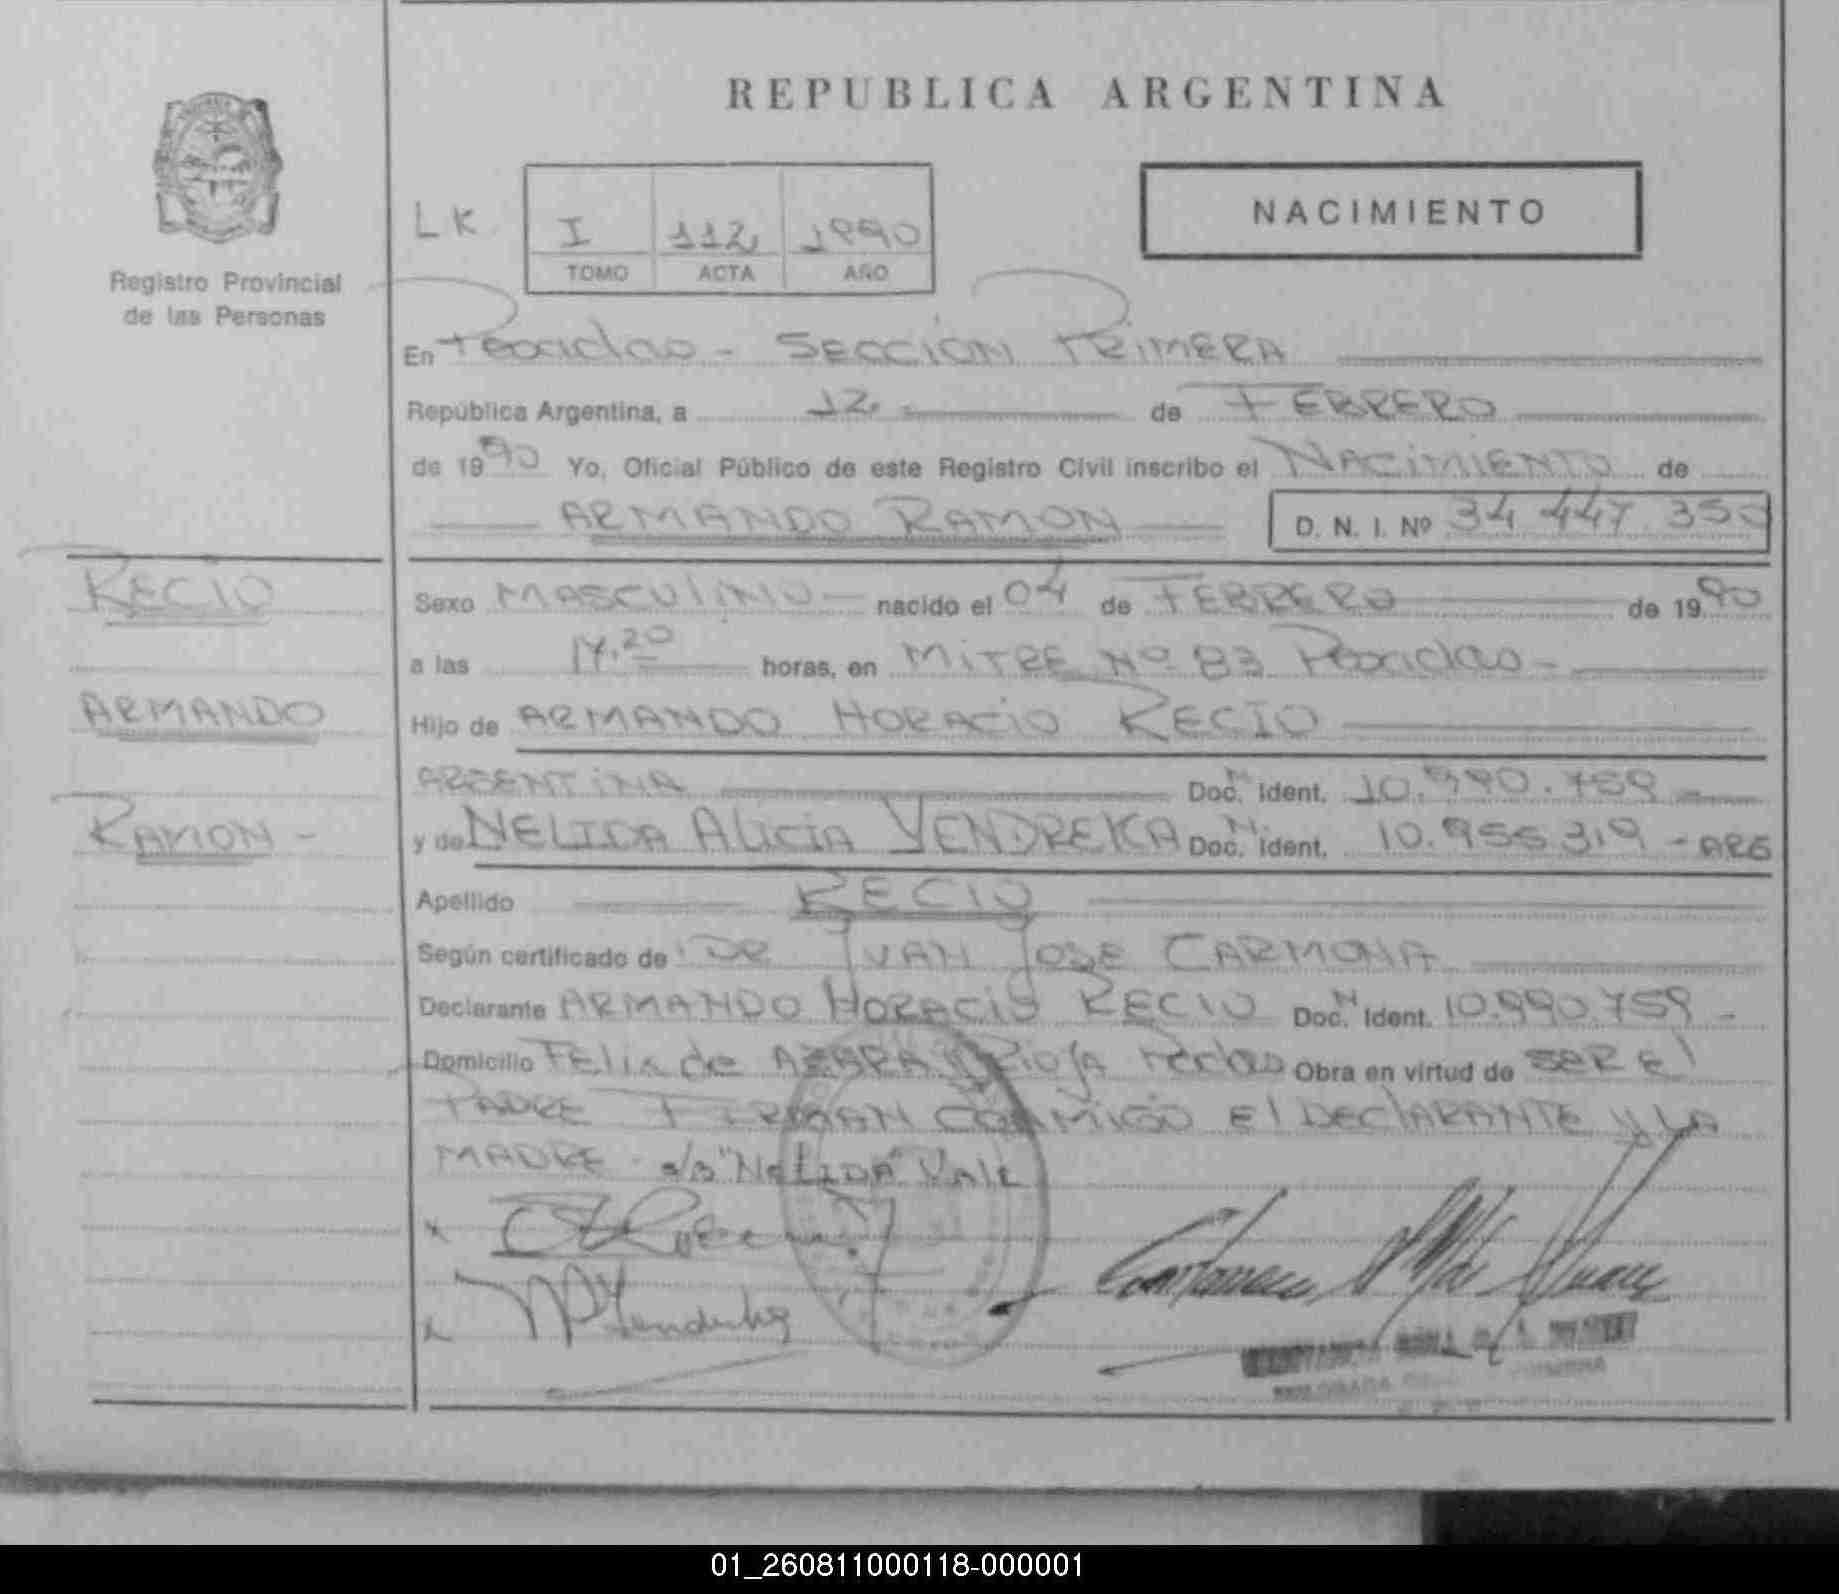 REPUBLICA ARGENTINA
Registro Provincial
de las Personas
LK
I 112 1990
TOMO ACTA AÑO
NACIMIENTO
En Posadas - SECCION PRIMERA
República Argentina, a 12 de FEBRERO
de 1990 Yo, Oficial Público de este Registro Civil inscribo el NACIMIENTO de
ARMANDO RAMON D. N. I. Nº 34 447 350
RECIO
ARMANDO
RAMON -
Sexo MASCULINO nacido el 04 de FEBRERO de 1990
a las 17.20 horas, en MITRE Nº 83 Posadas -
Hijo de ARMANDO HORACIO RECIO
ARGENTINA Doc. N. Ident. 10.990.759
y de NELIDA ALICIA YENDREKA Doc. N. Ident. 10.955.319 - ARG
Apellido RECIO
Según certificado de DR JUAN JOSE CARMONA
Declarante ARMANDO HORACIO RECIO Doc. N. Ident. 10.990.759 -
Domicilio Felix de AZARA y Rioja Pdas Obra en virtud de SER El
PADRE FIRMAN CONMIGO El DECLARANTE y LA
MADRE - s/b "NELIDA" Vale
01_260811000118-000001